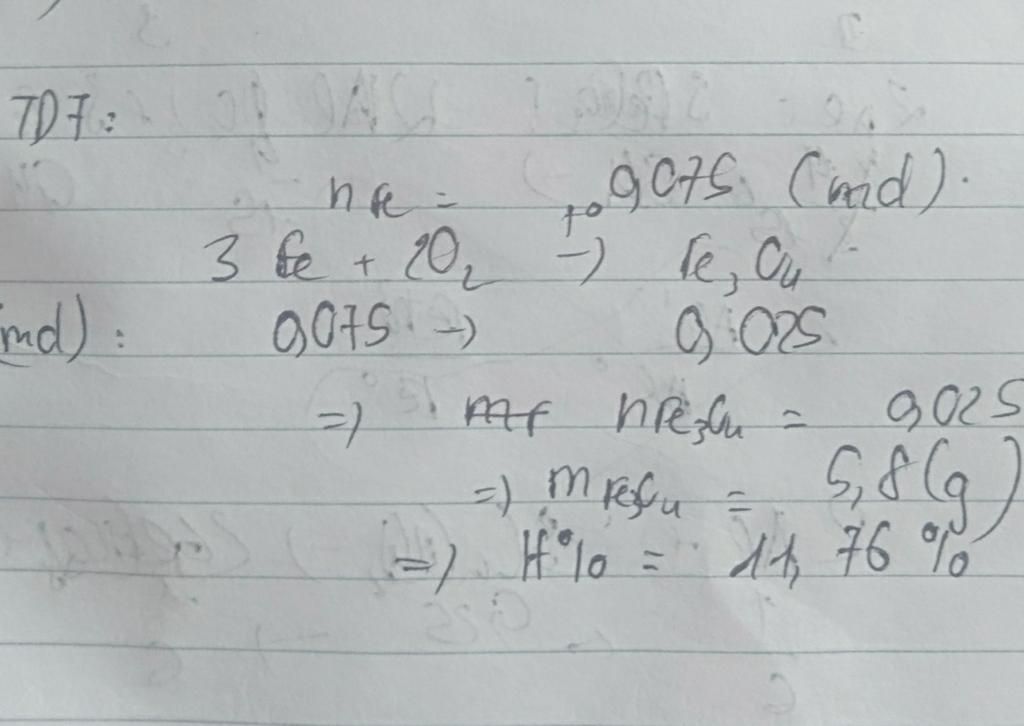 TD7:
n Fe = 0,075 (mol).
3 Fe + 2O₂ →(t⁰) Fe₃O₄
mol): 0,075 → 0,025
=) nFe₃O₄ = 0,025
=) mFe₃O₄ = 5,8 (g)
=) H% = 11,76 %